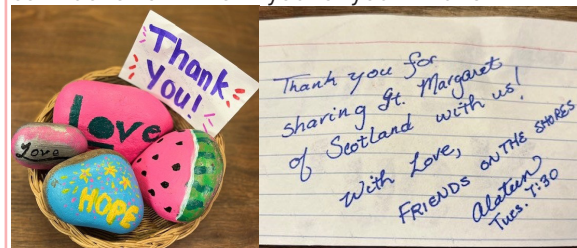 Thank
You!
Love
Love
HOPE
Thank you for
sharing St. Margaret
of Scotland with us!
With Love,
FRIENDS ON THE SHORES
Alateen
Tues. 7:30